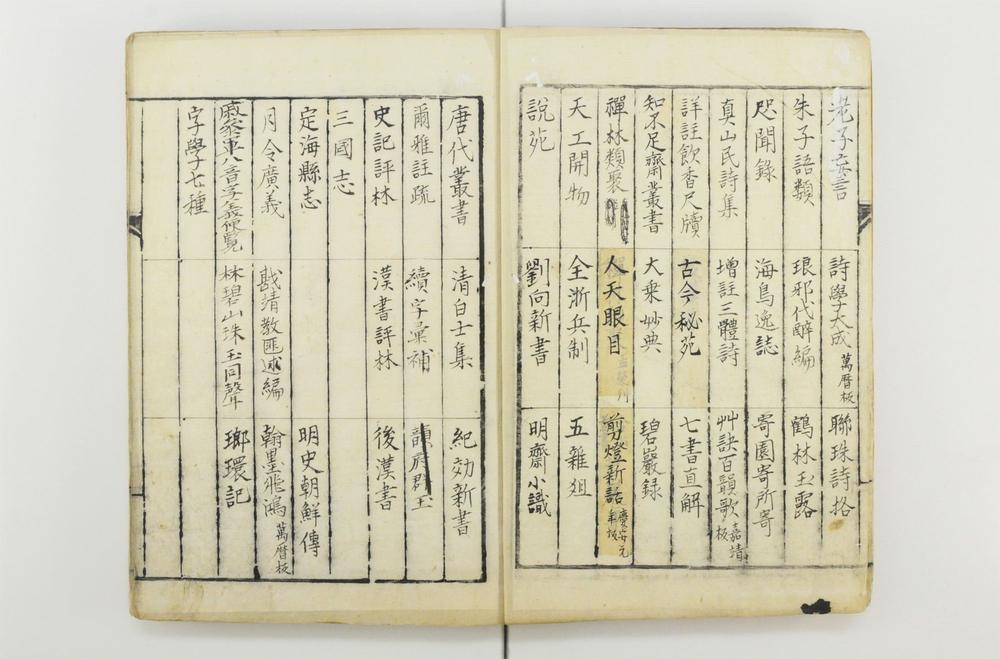 老子妄言
詩學大成 萬曆板
聯珠詩格
朱子語類
琅邪代醉編
鶴林玉露
咫聞錄
海島逸誌
寄園寄所寄
真山民詩集
增註三體詩
艸訣百韻歌 嘉靖板
詳註飲香尺牘
古今秘苑
七書直解
知不足齋叢書
大乗妙典
碧巖錄
禪林類聚
人天眼目
剪燈新話 慶安元年板
天工開物
全浙兵制
五雜俎
說苑
劉向新書
明齋小識
唐代叢書
清白士集
紀効新書
爾雅註疏
續字彙補
韻府群玉
史記評林
漢書評林
後漢書
三國志
定海縣志
明史朝鮮傳
月令廣義
戢靖教匪述編
翰墨飛鴻 萬曆板
戚叅軍八音字義便覧
林碧山珠玉同聲
瑯環記
字學七種